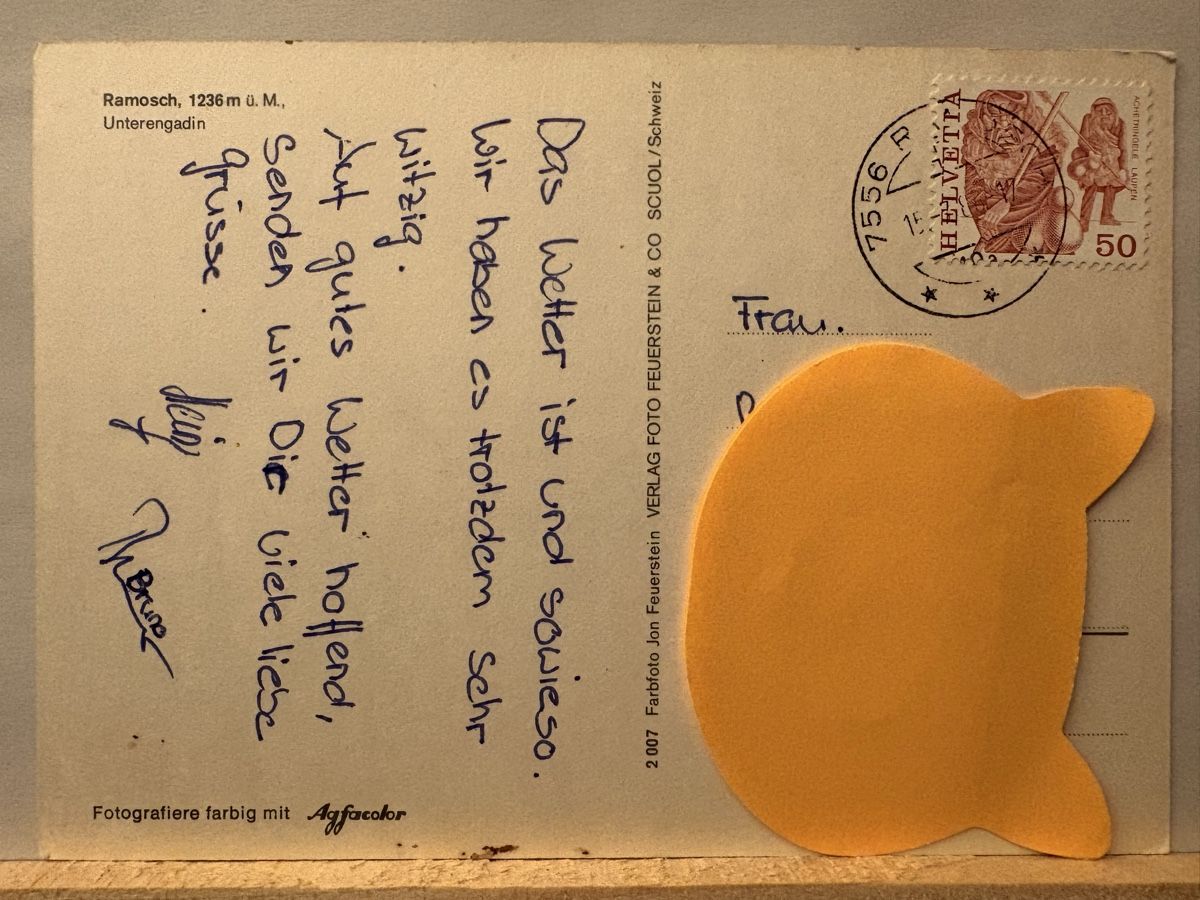 Ramosch, 1236 m ü. M.,
Unterengadin
Das Wetter ist und sowieso.
Wir haben es trotzdem sehr
witzig.
Auf gutes Wetter hoffend,
senden wir Dir viele liebe
grüsse.
Bruno
Fotografiere farbig mit Agfacolor
2 007 Farbfoto Jon Feuerstein VERLAG FOTO FEUERSTEIN & CO SCUOL/Schweiz
HELVETIA
ACHETRINGELE LAUPEN
50
7556 R
15.
Frau.